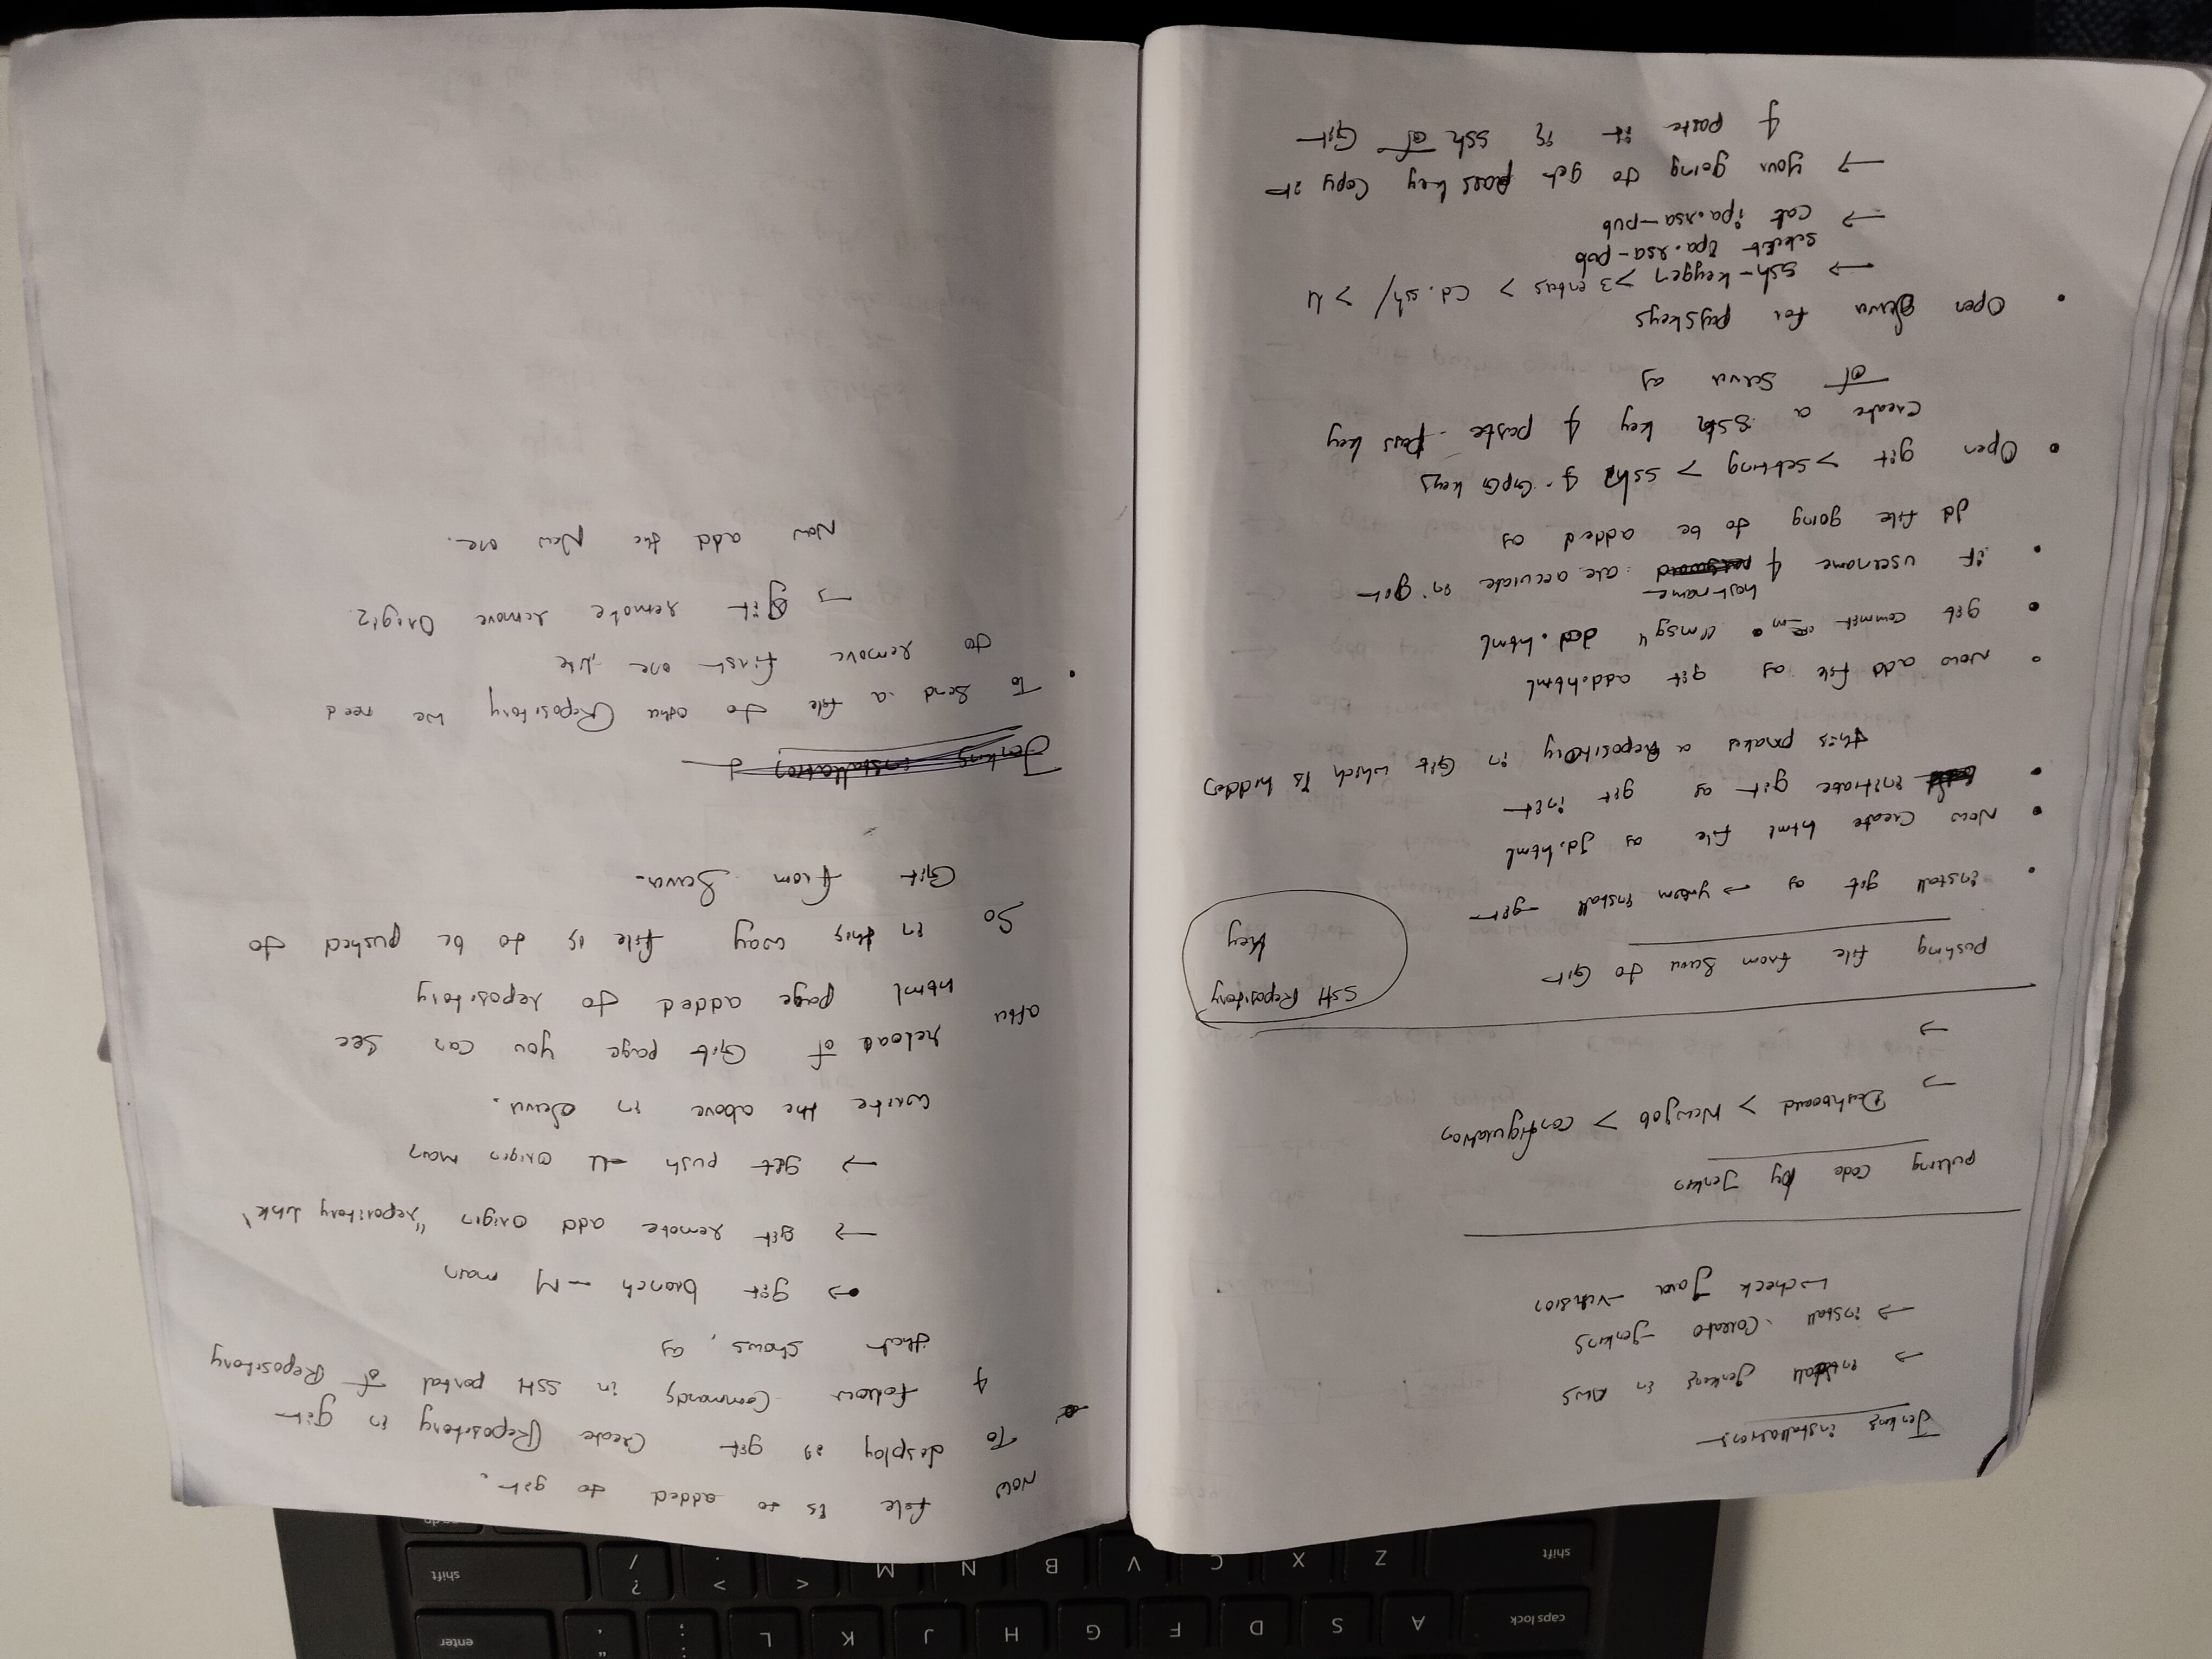 Jenkins installations
→ install Jenkins in AWS
→ install Correato Jenkins
↳ check Java version
pulling code by Jenkins
→ Dashboard > Newjob > configuration
→
SSH Repository
key
pushing file from Server to Git
• install git as → yum install git
• Now create html file as Jd.html
• initiate git as git init
this makes a Repository in Git which is hidden
• Now add file as git add.html
• git commit -m "msg" Jd.html
• if username & hostname are accurate in git
Jd file going to be added as
• Open git > setting > ssh & GPG keys
Create a SSh key & paste pass key
of server as
• Open Server for passkeys
→ ssh-keygen > 3 enters > cd.ssh/ > ll
select ipa.rsa-pub
→ cat ipa.rsa-pub
→ your going to get pass key Copy it
& paste it in ssh of Git
Now file is to added to git.
To display in git Create Repository in git
& follow Commands in SSH portal of Repository
that shows, as
→ git branch -M main
→ git remote add origin "repository link"
→ git push -u origin main
write the above in Server.
after reload of Git page you can see
html page added to repository
So in this way file is to be pushed to
Git from Server.
Jenkins installation
• To Send a file to other Repository we need
to remove first one like
→ git remote remove Origin
Now add the New one.
shift
Z
X
C
V
B
N
M
<
,
>
.
?
/
shift
caps lock
A
S
D
F
G
H
J
K
L
:
;
"
'
enter